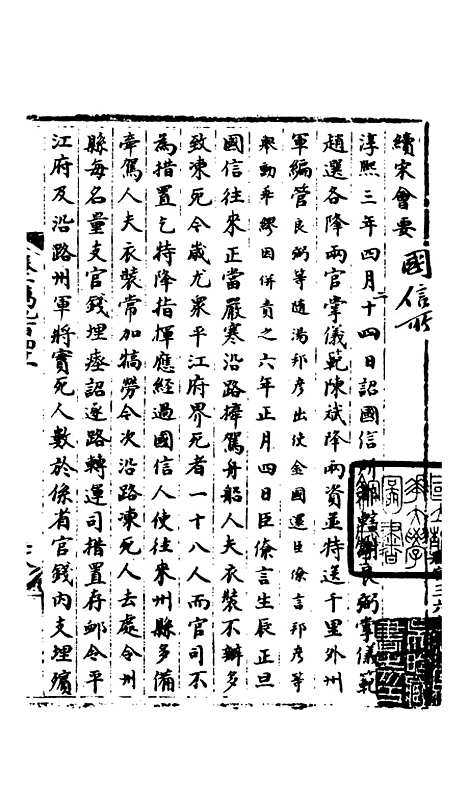 續宋會要
國信所
淳熙三年四月二十四日詔國信所 良弼掌儀範
趙選各降兩官掌儀範陳斌降兩資並特送千里外州
軍編管良弼等隨湯邦彥出使金國還臣僚言邦彥等
舉動乖繆因併責之六年正月四日臣僚言生辰正旦
國信往來正當嚴寒沿路撁駕舟船人夫衣裝不辦多
致凍死今歲尤眾平江府界死者一十八人而官司不
為措置乞特降指揮應經過國信人使往來州縣多備
牽駕人夫衣裝常加犒勞令次沿路凍死人去處令州
縣每名量支官錢埋瘞詔逐路轉運司措置存卹令平
江府及沿路州軍將實死人數於係省官錢內支埋殯